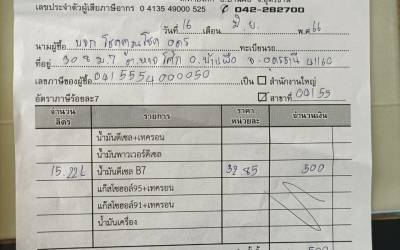 เลขประจำตัวผู้เสียภาษีอากร 0 4135 49000 525 042-282700
วันที่ 16 เดือน มิ.ย. พ.ศ. 66
นามผู้ซื้อ บจก โชคคูณโชค อุดร ทะเบียนรถ
ที่อยู่ 308 ม.7 ต. อ.บ้านผือ จ.อุดรธานี 41160
เลขภาษีของผู้ซื้อ 0415554000050 สำนักงานใหญ่
อัตราภาษีร้อยละ7 สาขาที่ 00155
จำนวน ลิตร รายการ ราคา หน่วยละ จำนวนเงิน
น้ำมันดีเซล+เทครอน
น้ำมันพาวเวอร์ดีเซล
15.22L น้ำมันดีเซล B7 32.85 500
แก๊สโซฮอล์95+เทครอน
แก๊สโซฮอล์91+เทครอน
น้ำมันเครื่อง